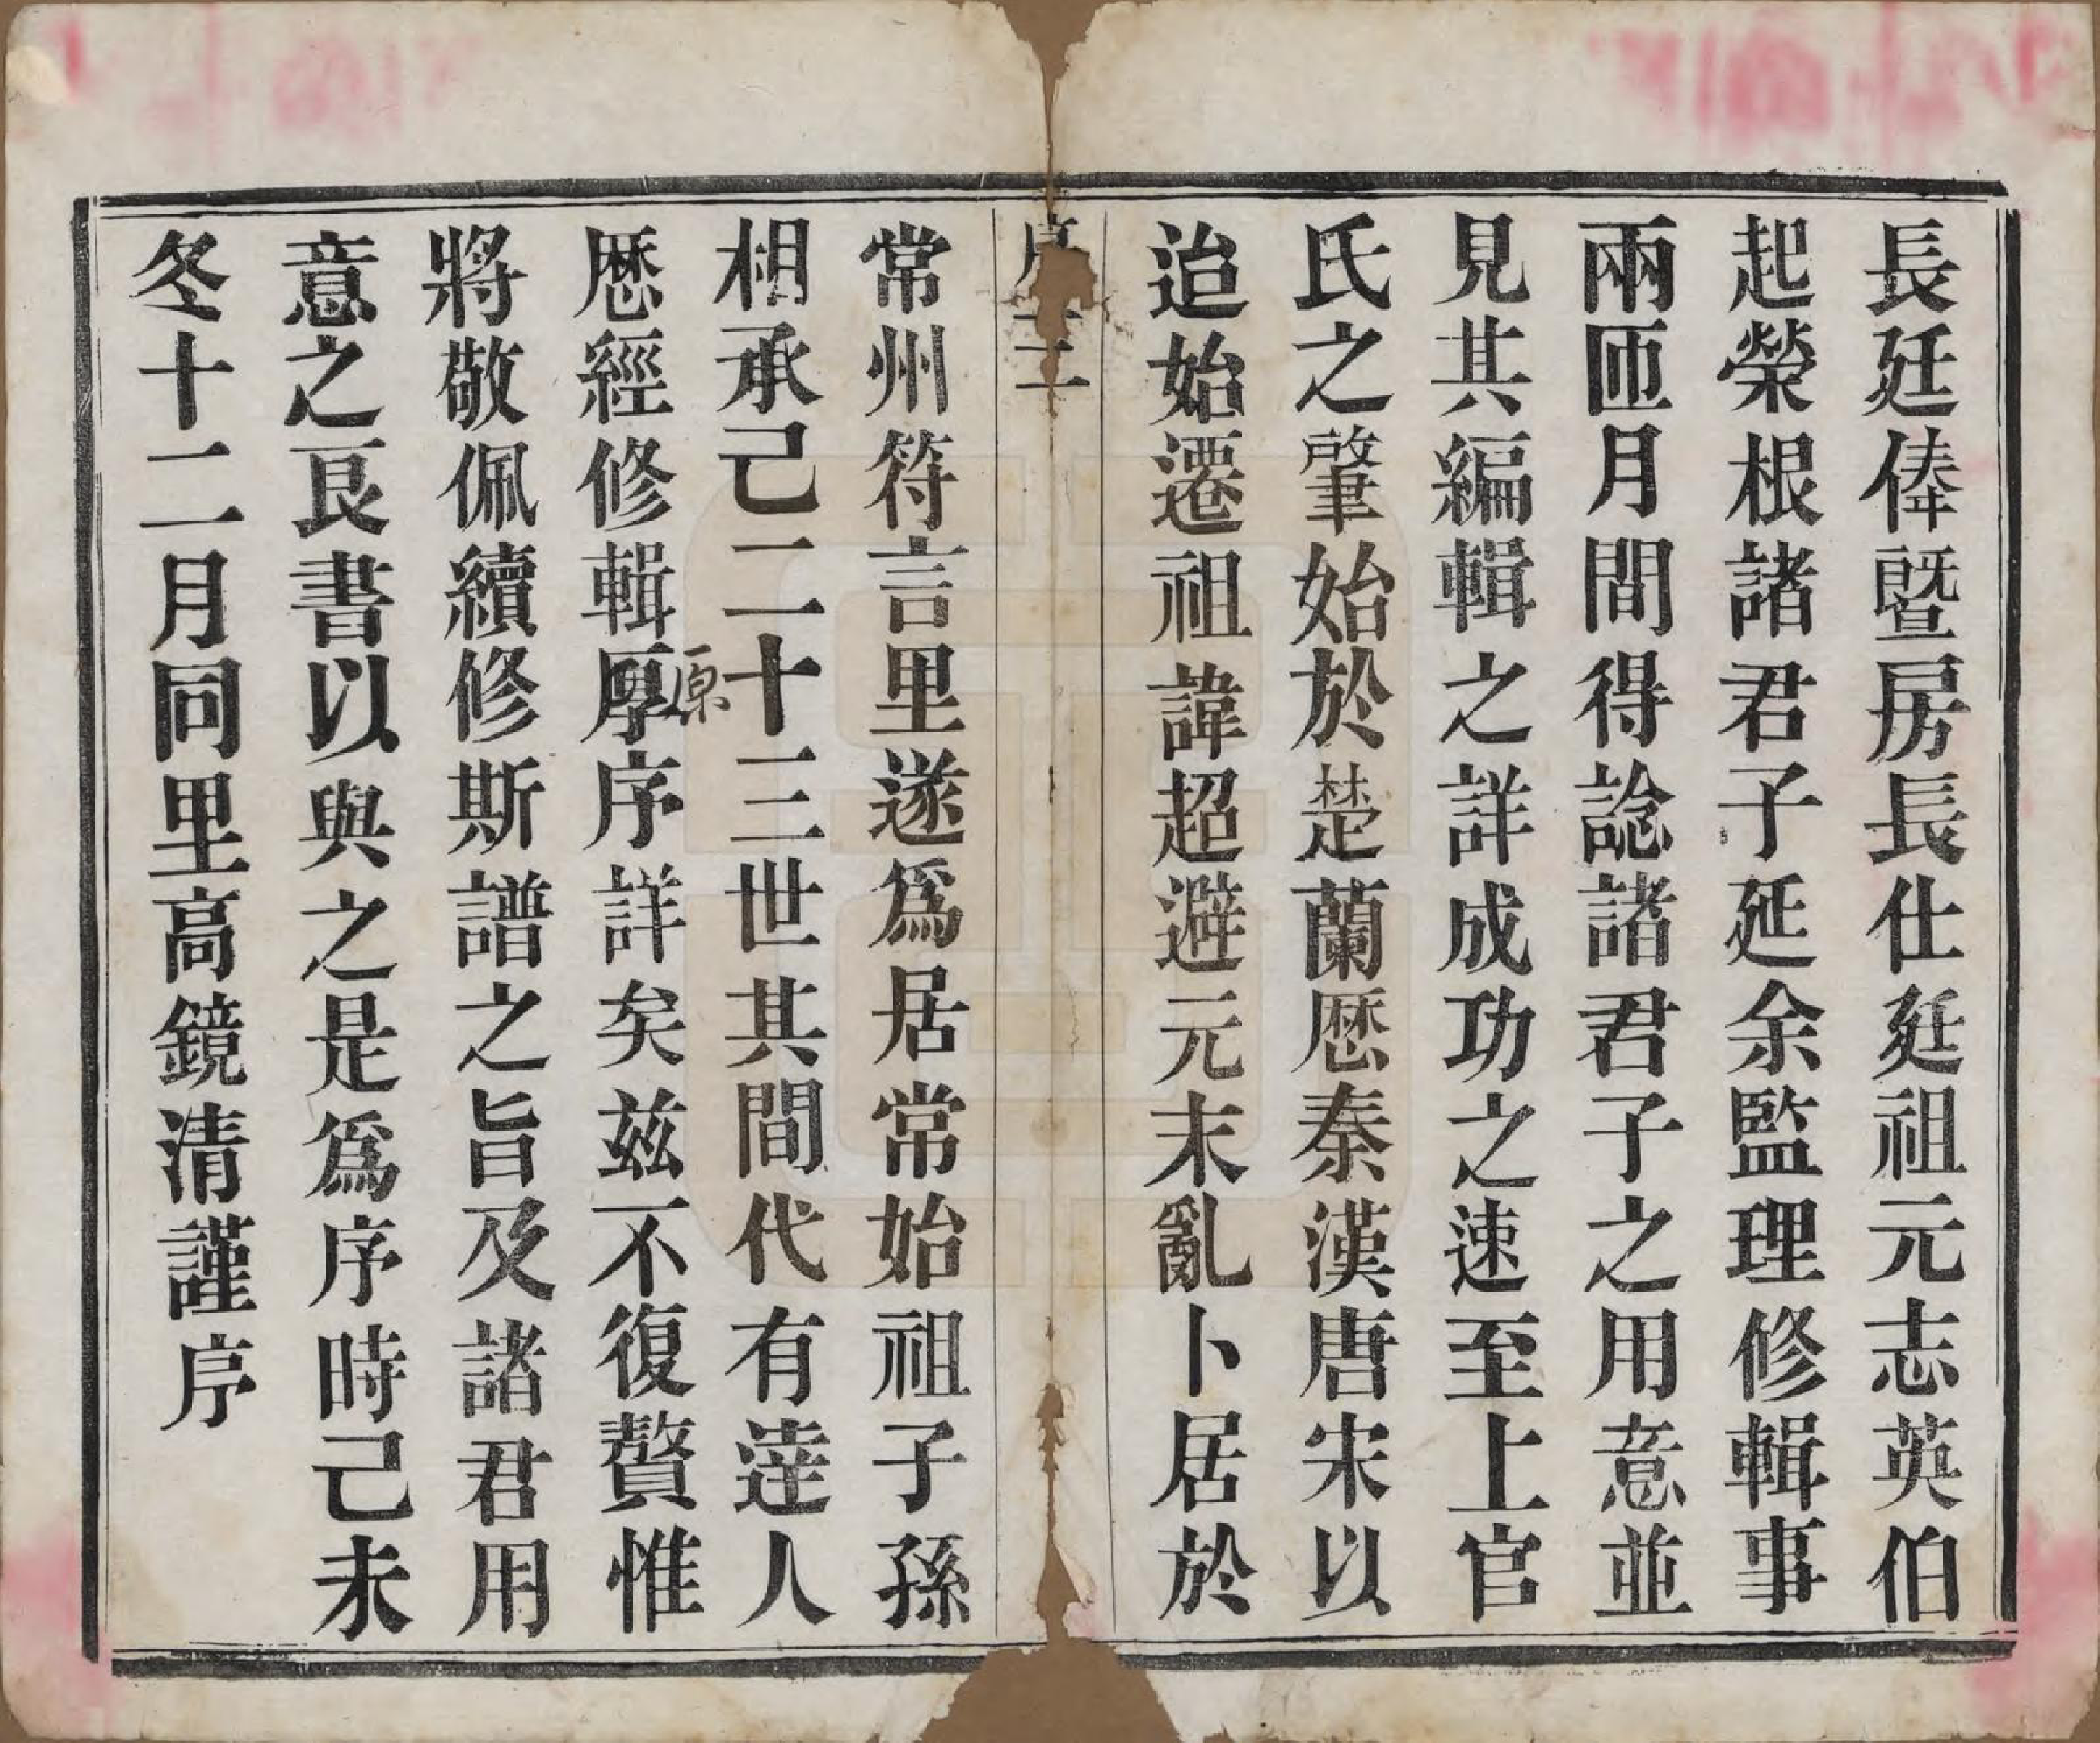 長廷俸暨房長仕廷祖元志英伯
起榮根諸君子延余監理修輯事
兩匝月間得諗諸君子之用意並
見其編輯之詳成功之速至上官
氏之肇始於楚蘭厯秦漢唐宋以
迨始遷祖諱超避元末亂卜居於
序
常州符言里遂爲居常始祖子孫
相承己二十三世其間代有達人
厯經修輯厚序詳矣茲不復贅惟
原
將敬佩續修斯譜之旨及諸君用
意之良書以與之是爲序時己未
冬十二月同里高鏡清謹序